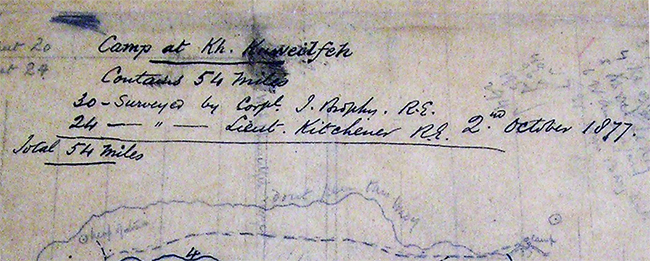 Camp at Kh. Kuweilfeh
Contains 54 Miles
30 - Surveyed by Corpl. J. Brophy. R.E.
24 — " — Lieut. Kitchener R.E. 2nd October 1877.
Total 54 Miles
20
24
dont
this way
4